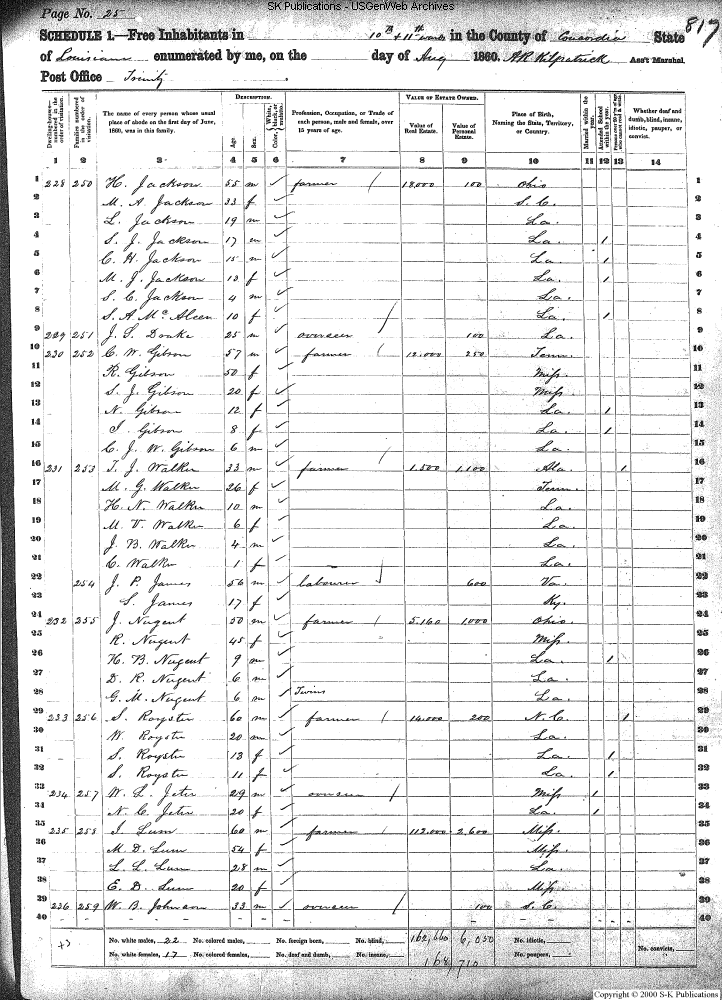 SK Publications - USGenWeb Archives
Page No. 25
817
SCHEDULE 1.—Free Inhabitants in 10th & 11th wards in the County of Concordia State
of Louisiana enumerated by me, on the day of Aug 1860. A R Kilpatrick Ass't Marshal.
Post Office Trinity
Dwelling-houses—numbered in the order of visitation.
Families numbered in the order of visitation.
The name of every person whose usual place of abode on the first day of June, 1860, was in this family.
DESCRIPTION.
Age.
Sex.
Color, White, black, or mulatto.
Profession, Occupation, or Trade of each person, male and female, over 15 years of age.
VALUE OF ESTATE OWNED.
Value of Real Estate.
Value of Personal Estate.
Place of Birth, Naming the State, Territory, or Country.
Married within the year.
Attended School within the year.
Whether deaf and dumb, blind, insane, idiotic, pauper, or convict.
1 2 3 4 5 6 7 8 9 10 11 12 13 14
1 228 250 H. Jackson 55 m ✓ farmer / 18,000 100 Ohio 1
2 M. A. Jackson 33 f ✓ S. C. 2
3 L. Jackson 19 m ✓ La. 3
4 S. J. Jackson 17 m ✓ La. 1 4
5 C. H. Jackson 15 m ✓ La. 1 5
6 M. J. Jackson 13 f ✓ La. 1 6
7 S. C. Jackson 4 m ✓ La. 7
8 S. A. Mc 10 f ✓ La. 1 8
9 229 251 J. S. Drake 25 m ✓ overseer / 100 La. 9
10 230 252 C. W. Gibson 57 m ✓ farmer / 12,000 250 Tenn. 10
11 R. Gibson 50 f ✓ Miss. 11
12 S. J. Gibson 20 f ✓ Miss 12
13 N. Gibson 12 f ✓ La. 1 13
14 I. Gibson 8 f ✓ La. 1 14
15 C. J. W. Gibson 6 m ✓ La. 15
16 231 253 T. J. Walker 33 m ✓ farmer / 1,500 1,100 Ala 1 16
17 M. G. Walker 26 f ✓ Tenn. 17
18 H. N. Walker 10 m ✓ La. 18
19 M. V. Walker 6 f ✓ La. 19
20 J. B. Walker 4 m ✓ La. 20
21 C. Walker 1 f ✓ La. 21
22 254 J. P. James 56 m ✓ labourer 600 Va. 22
23 S. James 17 f ✓ Ky. 23
24 232 255 J. Nugent 50 m ✓ farmer / 5,160 1,000 Ohio. 24
25 R. Nugent 45 f ✓ Miss. 25
26 H. B. Nugent 9 m ✓ La. 1 26
27 D. R. Nugent 6 m ✓ La. 27
28 G. M. Nugent 6 m ✓ Twins La. 28
29 233 256 S. Royster 60 m ✓ farmer / 14,000 200 N. C. 1 29
30 W. Royster 20 m ✓ La. 30
31 S. Royster 13 f ✓ La. 1 31
32 S. Royster 11 f ✓ La. 1 32
33 234 257 W. L. Jeter 29 m ✓ overseer / Miss 1 33
34 N. C. Jeter 20 f ✓ La. 1 34
35 235 258 I. Lum 60 m ✓ farmer / 112,000 2,600 Miss. 35
36 M. D. Lum 54 f ✓ Miss. 36
37 L. L. Lum 28 m ✓ La. 37
38 E. D. Lum 20 f ✓ Miss 38
39 236 259 W. B. Johnson 33 m ✓ overseer / 100 S. C. 39
40 40
No. white males, 22 No. colored males, No. foreign born, No. blind, 162,660 6,050 No. idiotic, No. convicts,
No. white females, 17 No. colored females, No. deaf and dumb, No. insane, 168,710 No. paupers,
Copyright © 2000 S-K Publications